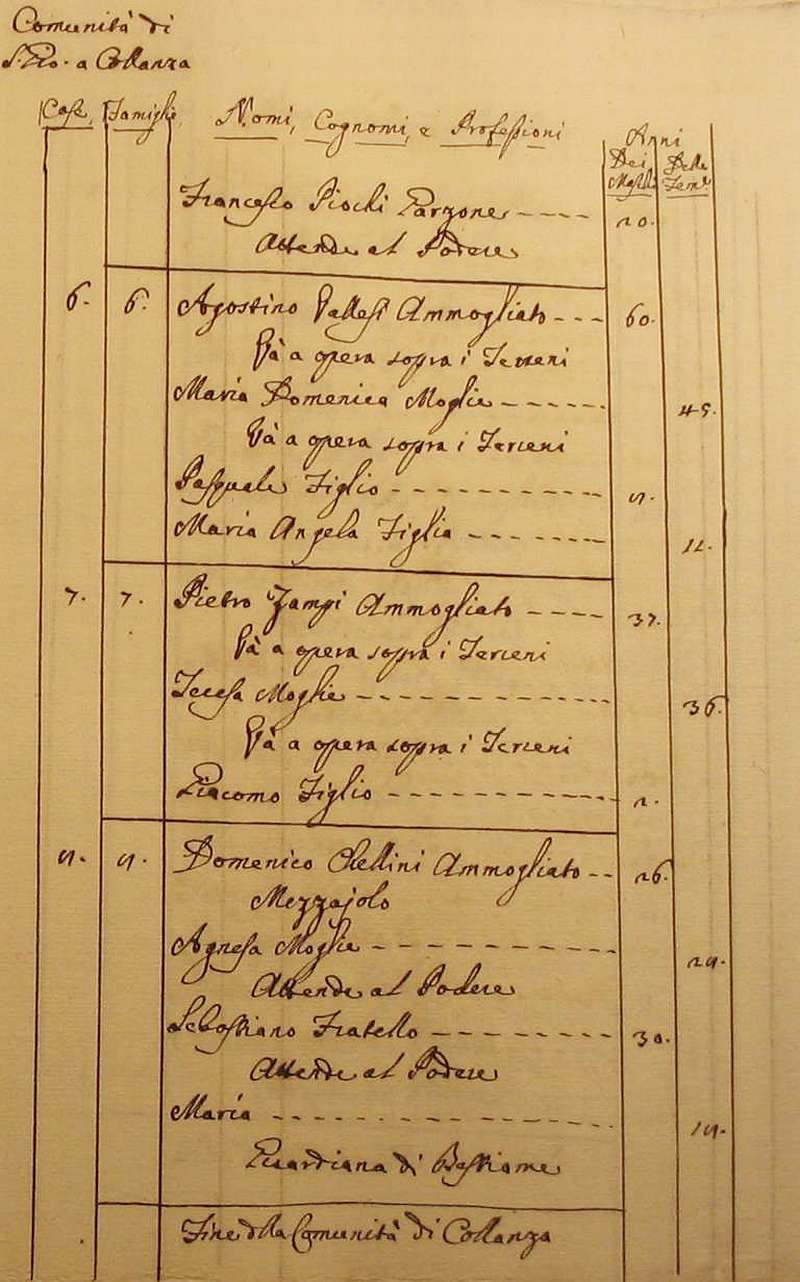 Comunità di
S. Pio. a Collanza
Case, Famiglie, Nomi, Cognomi, e Professioni Anni
Dei Maschi Delle Fem:e
Francesco Piochi Garzone ---- 20.
Attende al Podere
6. 6. Agostino Vallesi Ammogliato --- 60.
Và a opera sopra i Terreni
Maria Domenica Moglie ------ 45.
Và a opera sopra i Terreni
Pasquale Figlio ----------
Maria Angela Figlia ------- 12.
7. 7. Pietro Zampi Ammogliato ---- 37.
Và a opera sopra i Terreni
Teresa Moglie ------------ 36.
Và a opera sopra i Terreni
Giacomo Figlio ----------- 2.
Domenico Chellini Ammogliato -- 26.
Mezzajolo
Agnesa Moglie ----------- 29.
Attende al Podere
Sebastiano Fratello -------- 30.
Attende al Podere
Maria --------------- 19.
Guardiana di Bestiame
Fine della Comunità di Collanza